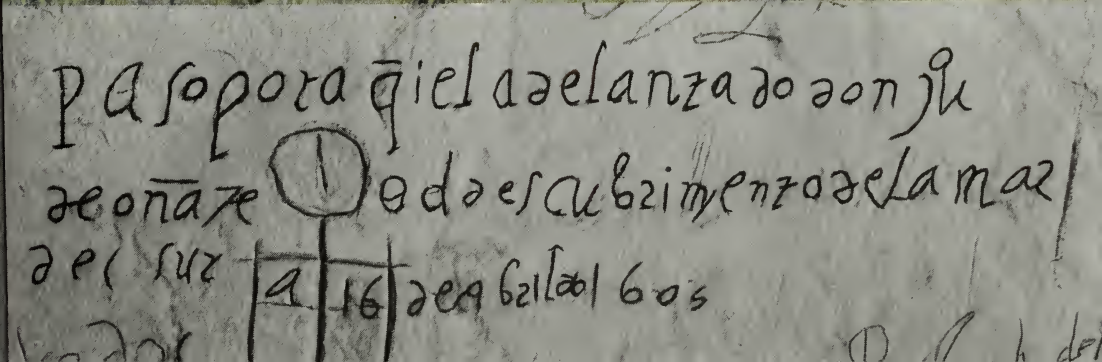 pasopora q̄iel adelantado don juº
de oñate el descubrimyento de la mar
del sur a 16 de abril 1605